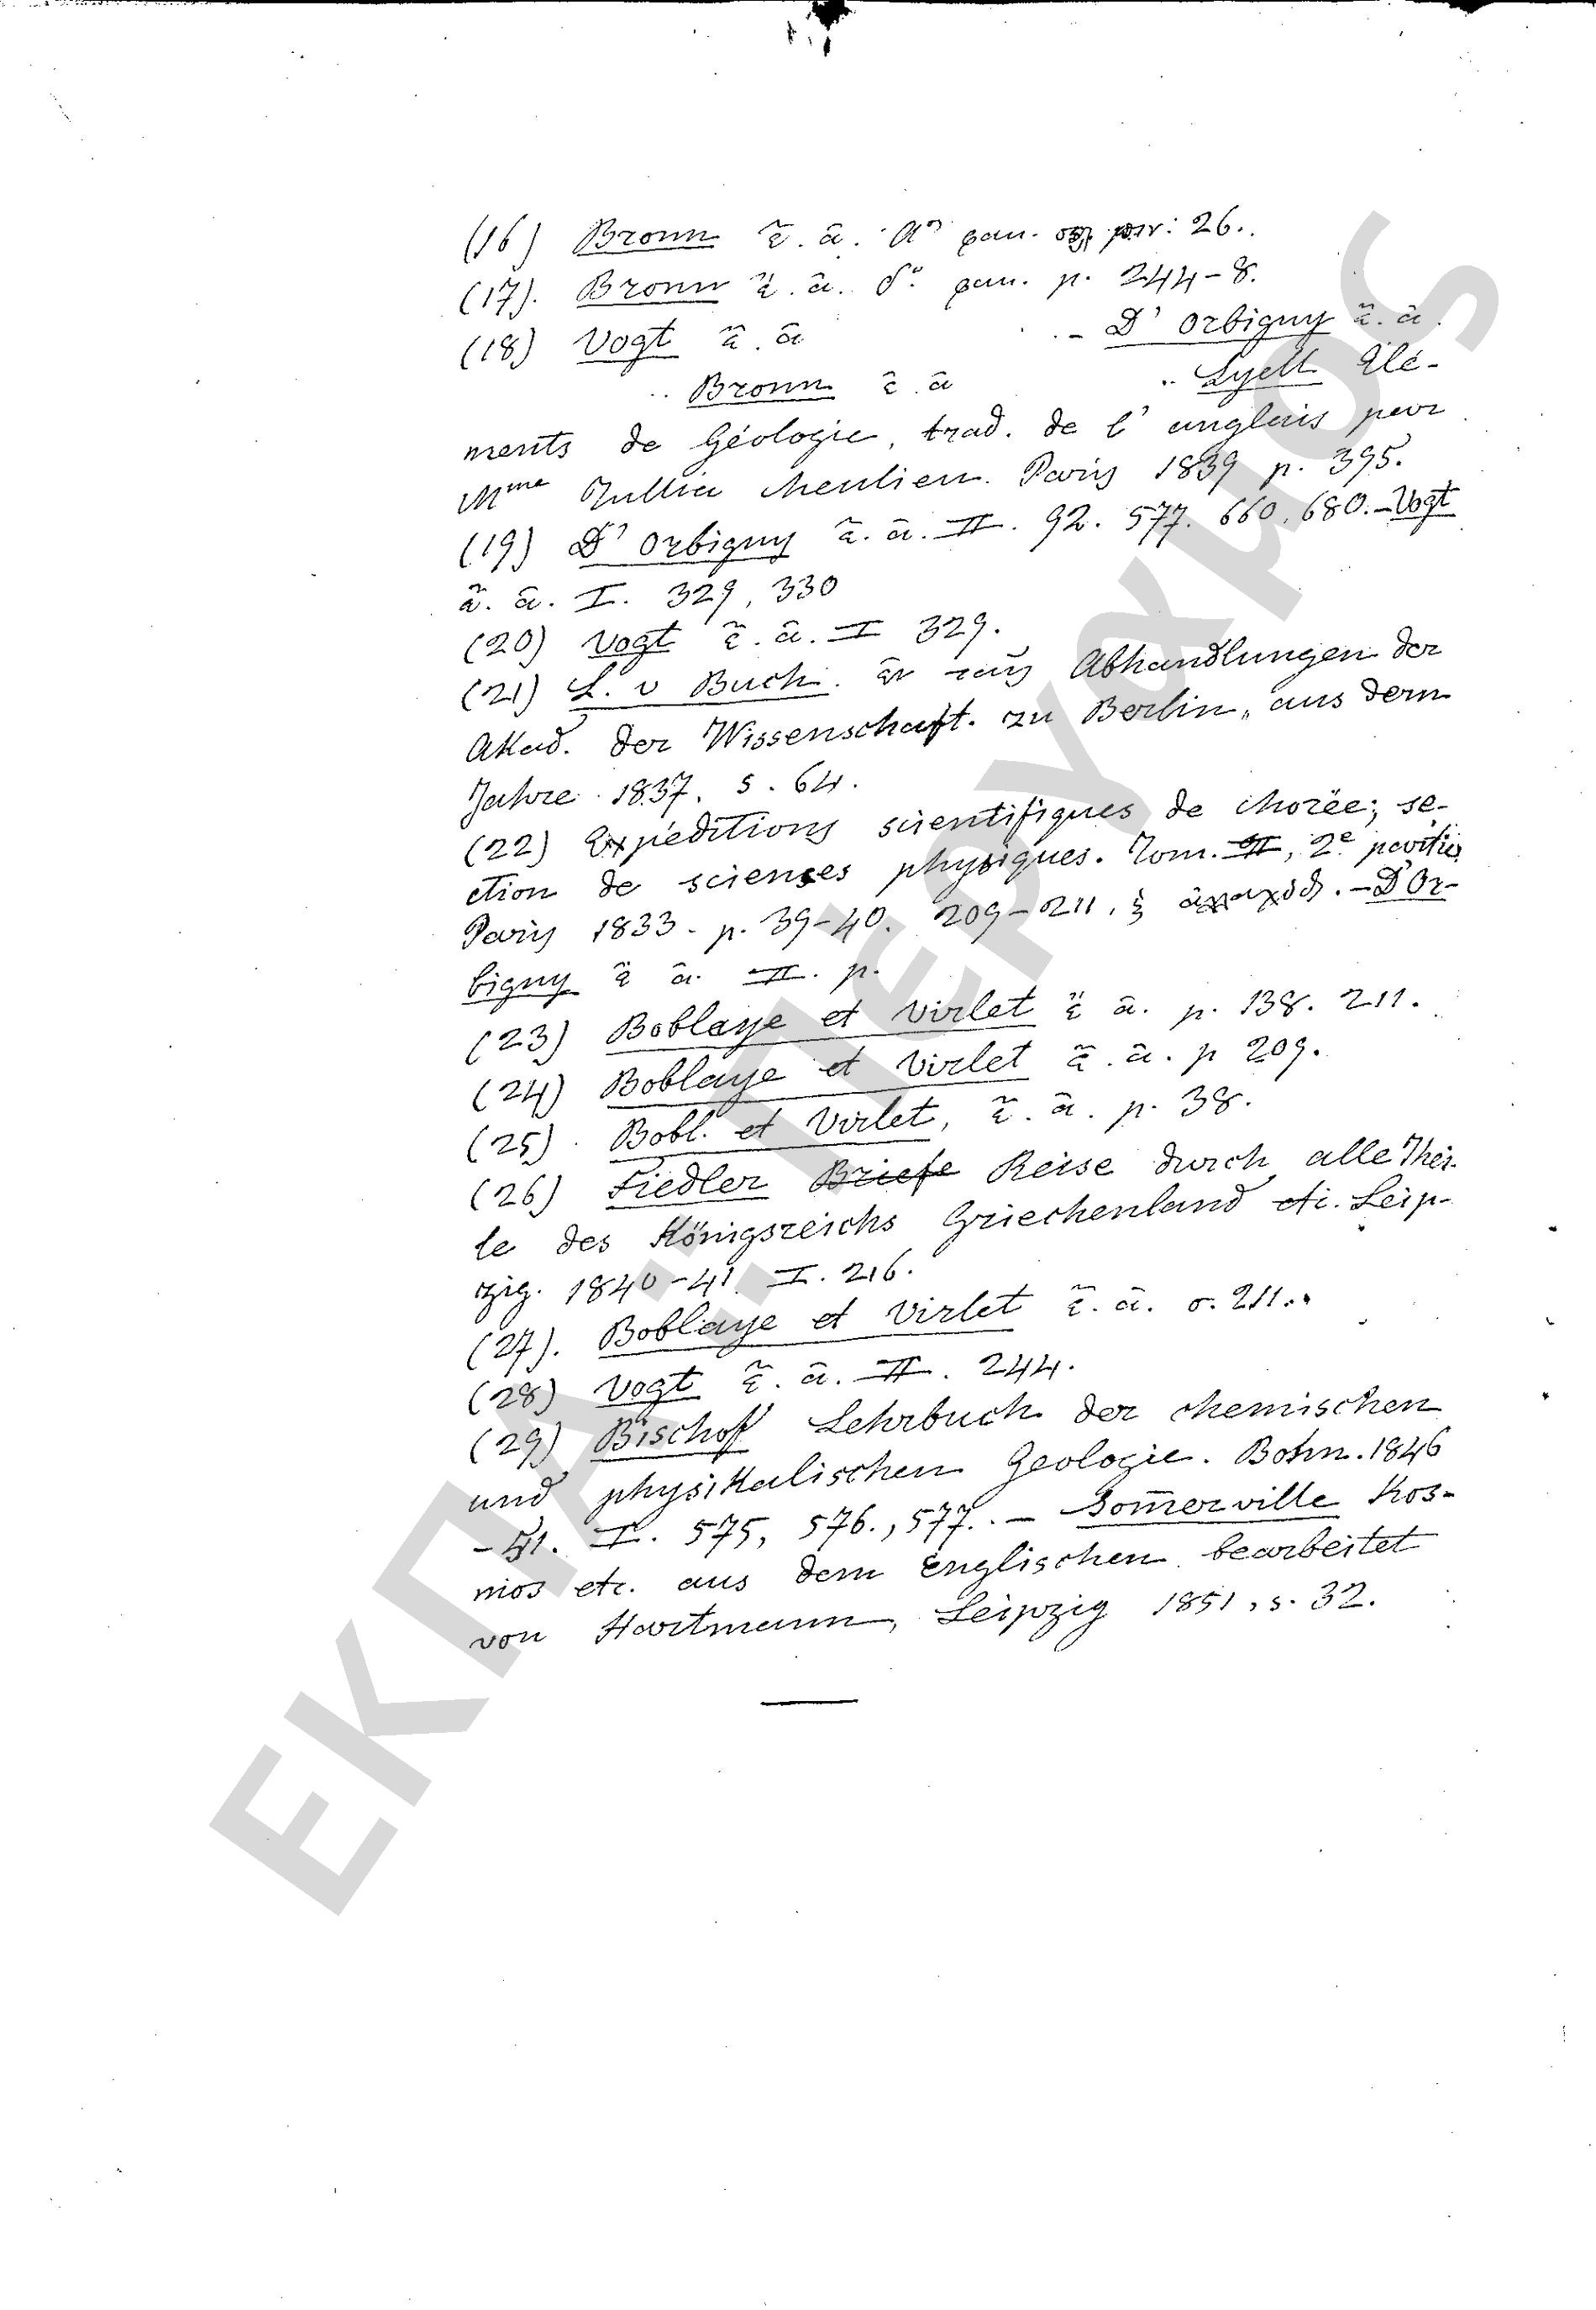 (16) Bronn ἔ. ἀ. Αον φαν. 26.
(17). Bronn ἔ. ἀ. δον φαν. p. 244-8.
(18) Vogt ἔ. ἀ - D' Orbigny ἔ. ἀ.
Bronn ἔ. ἀ Lyell Élé-
ments de Géologie, trad. de l' anglais par
Mme Tullia Meulien. Paris 1839 p. 395.
(19) D' Orbigny ἔ. ἀ. II. 92. 577. 660, 680. - Vogt
ἔ. ἀ. I. 329, 330
(20) Vogt ἔ. ἀ. I 329.
(21) L. v Buch. ἐν ταῖς Abhandlungen der
Akad. der Wissenschaft. zu Berlin, aus dem
Jahre 1837. s. 64.
(22) Expéditions scientifiques de Morée; se-
ction de scienses physiques. Tom. II, 2e partie
Paris 1833. p. 39-40. 209-211, ξ ἀλλαχόθ. - D' Or-
bigny ἔ ἀ. II. p.
(23) Boblaye et Virlet ἔ ἀ. p. 138. 211.
(24) Boblaye et Virlet ἔ. ἀ. p 209.
(25) Bobl. et Virlet, ἔ. ἀ. p. 38.
(26) Fiedler Briefe Reise durch alle Thei-
le des Königsreichs Griechenland etc. Leip-
zig. 1840-41 I. 216.
(27). Boblaye et Virlet ἔ. ἀ. σ. 211.
(28) Vogt ἔ. ἀ. II. 244.
(29) Bischof Lehrbuch der chemischen
und physikalischen Geologie. Bohn. 1846
-51. I. 575, 576., 577. - Som̄erville Kos-
mos etc. aus dem Englischen bearbeitet
von Hartmann, Leipzig 1851, s. 32.
ΕΚΠΑ::Πέργαμος